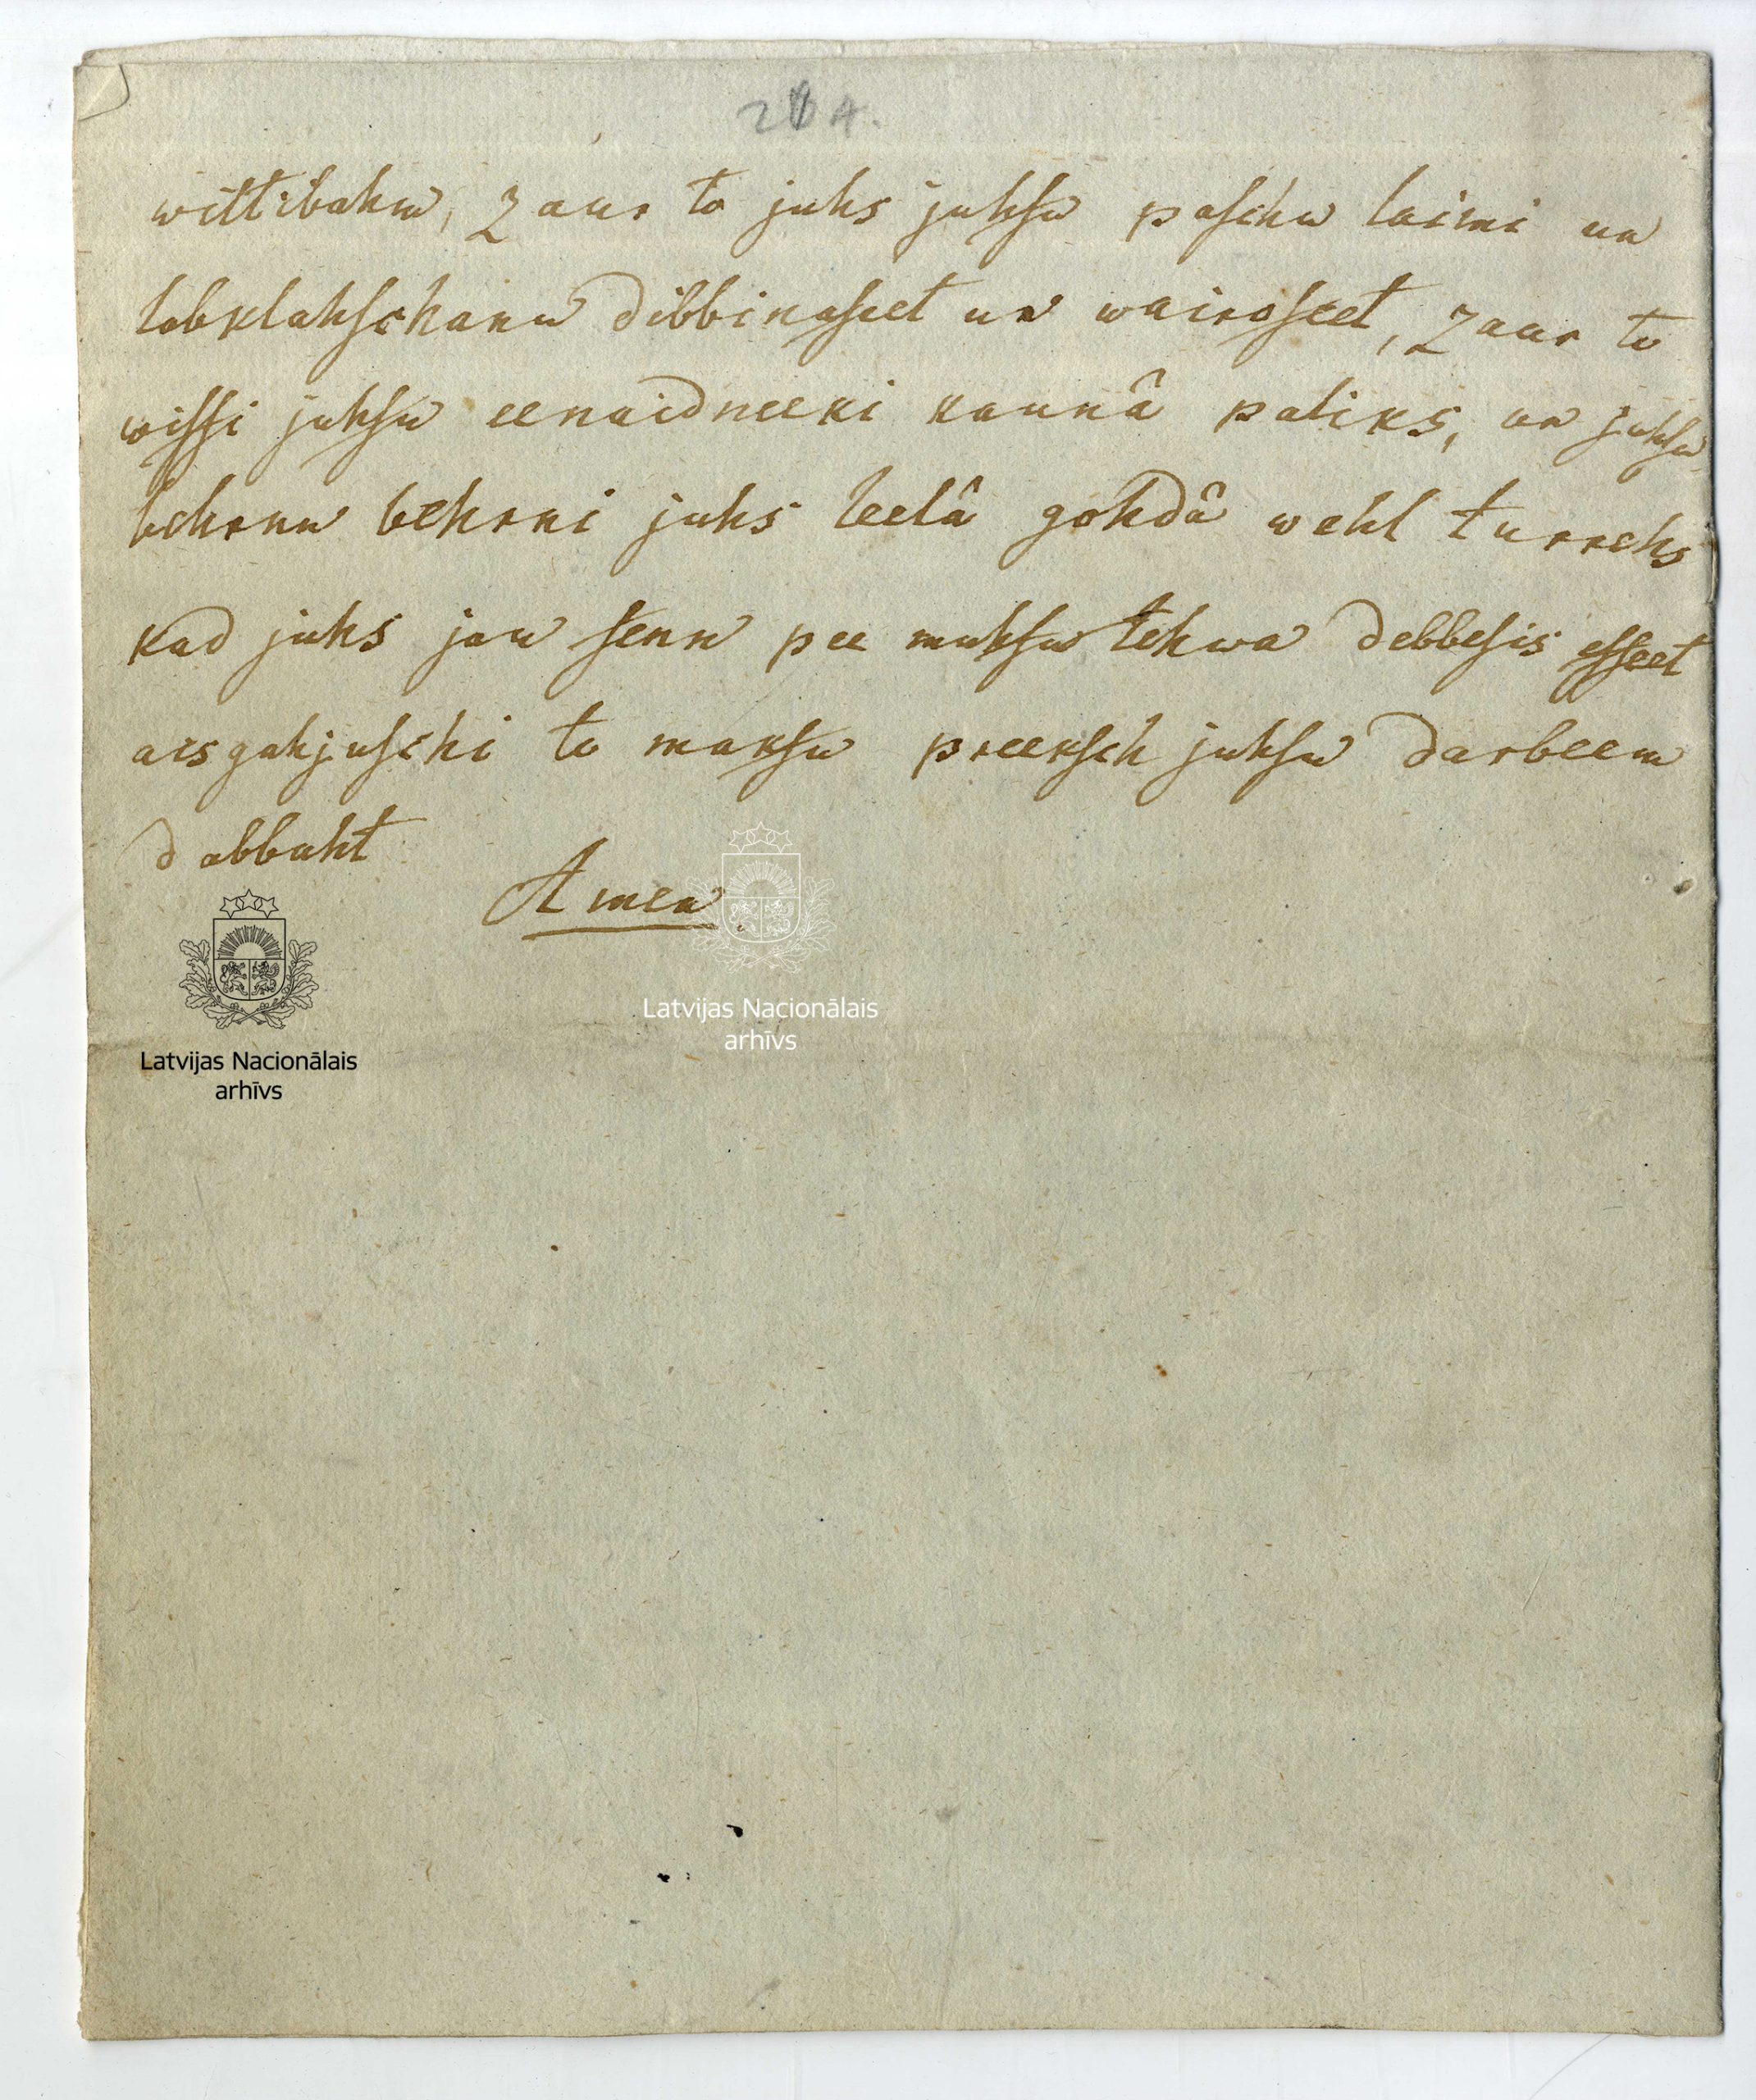 204.
wittibahm, zaur to juhs juhsu paschu laimi un
labklahschanu dibbinaseet un wairoseet, zaur to
wissi juhsu eenaidneeki kaunâ paliks, un juhsu
behrnu behrni juhs leelâ gohdâ wehl turrehs
kad juhs jau senn pee muhsu tehwa debbesis esseet
aisgahjuschi to maksu preeksch juhsu darbeem
dabbuht
Amen.
Latvijas Nacionālais
arhīvs
Latvijas Nacionālais
arhīvs